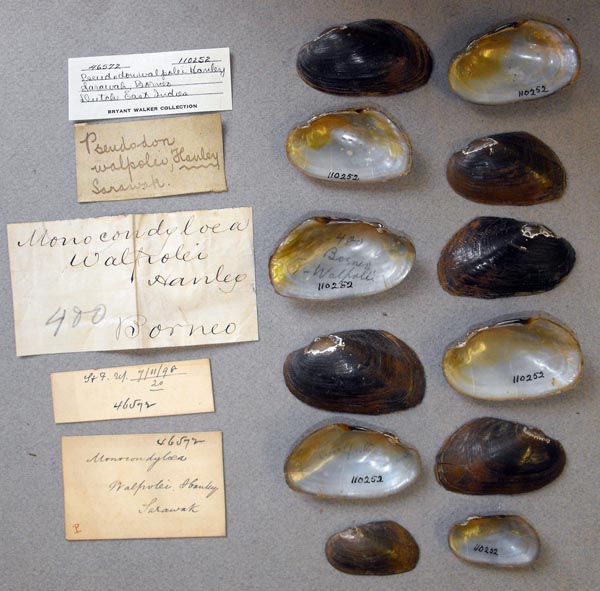 46572 110252
Pseudodon walpolei Hanley
Sarawak, Borneo
Dutch East Indies
BRYANT WALKER COLLECTION
Pseudodon
walpolei, Hanley
Sarawak.
Monocondyloea
Walpolei
Hanley
480
Borneo
7/11/98
20
46572
46572
Monocondyloea
Walpolei, Hanley
Sarawak
110252
110252
480
Borneo
Walpolei
110252
110252
110252
110252